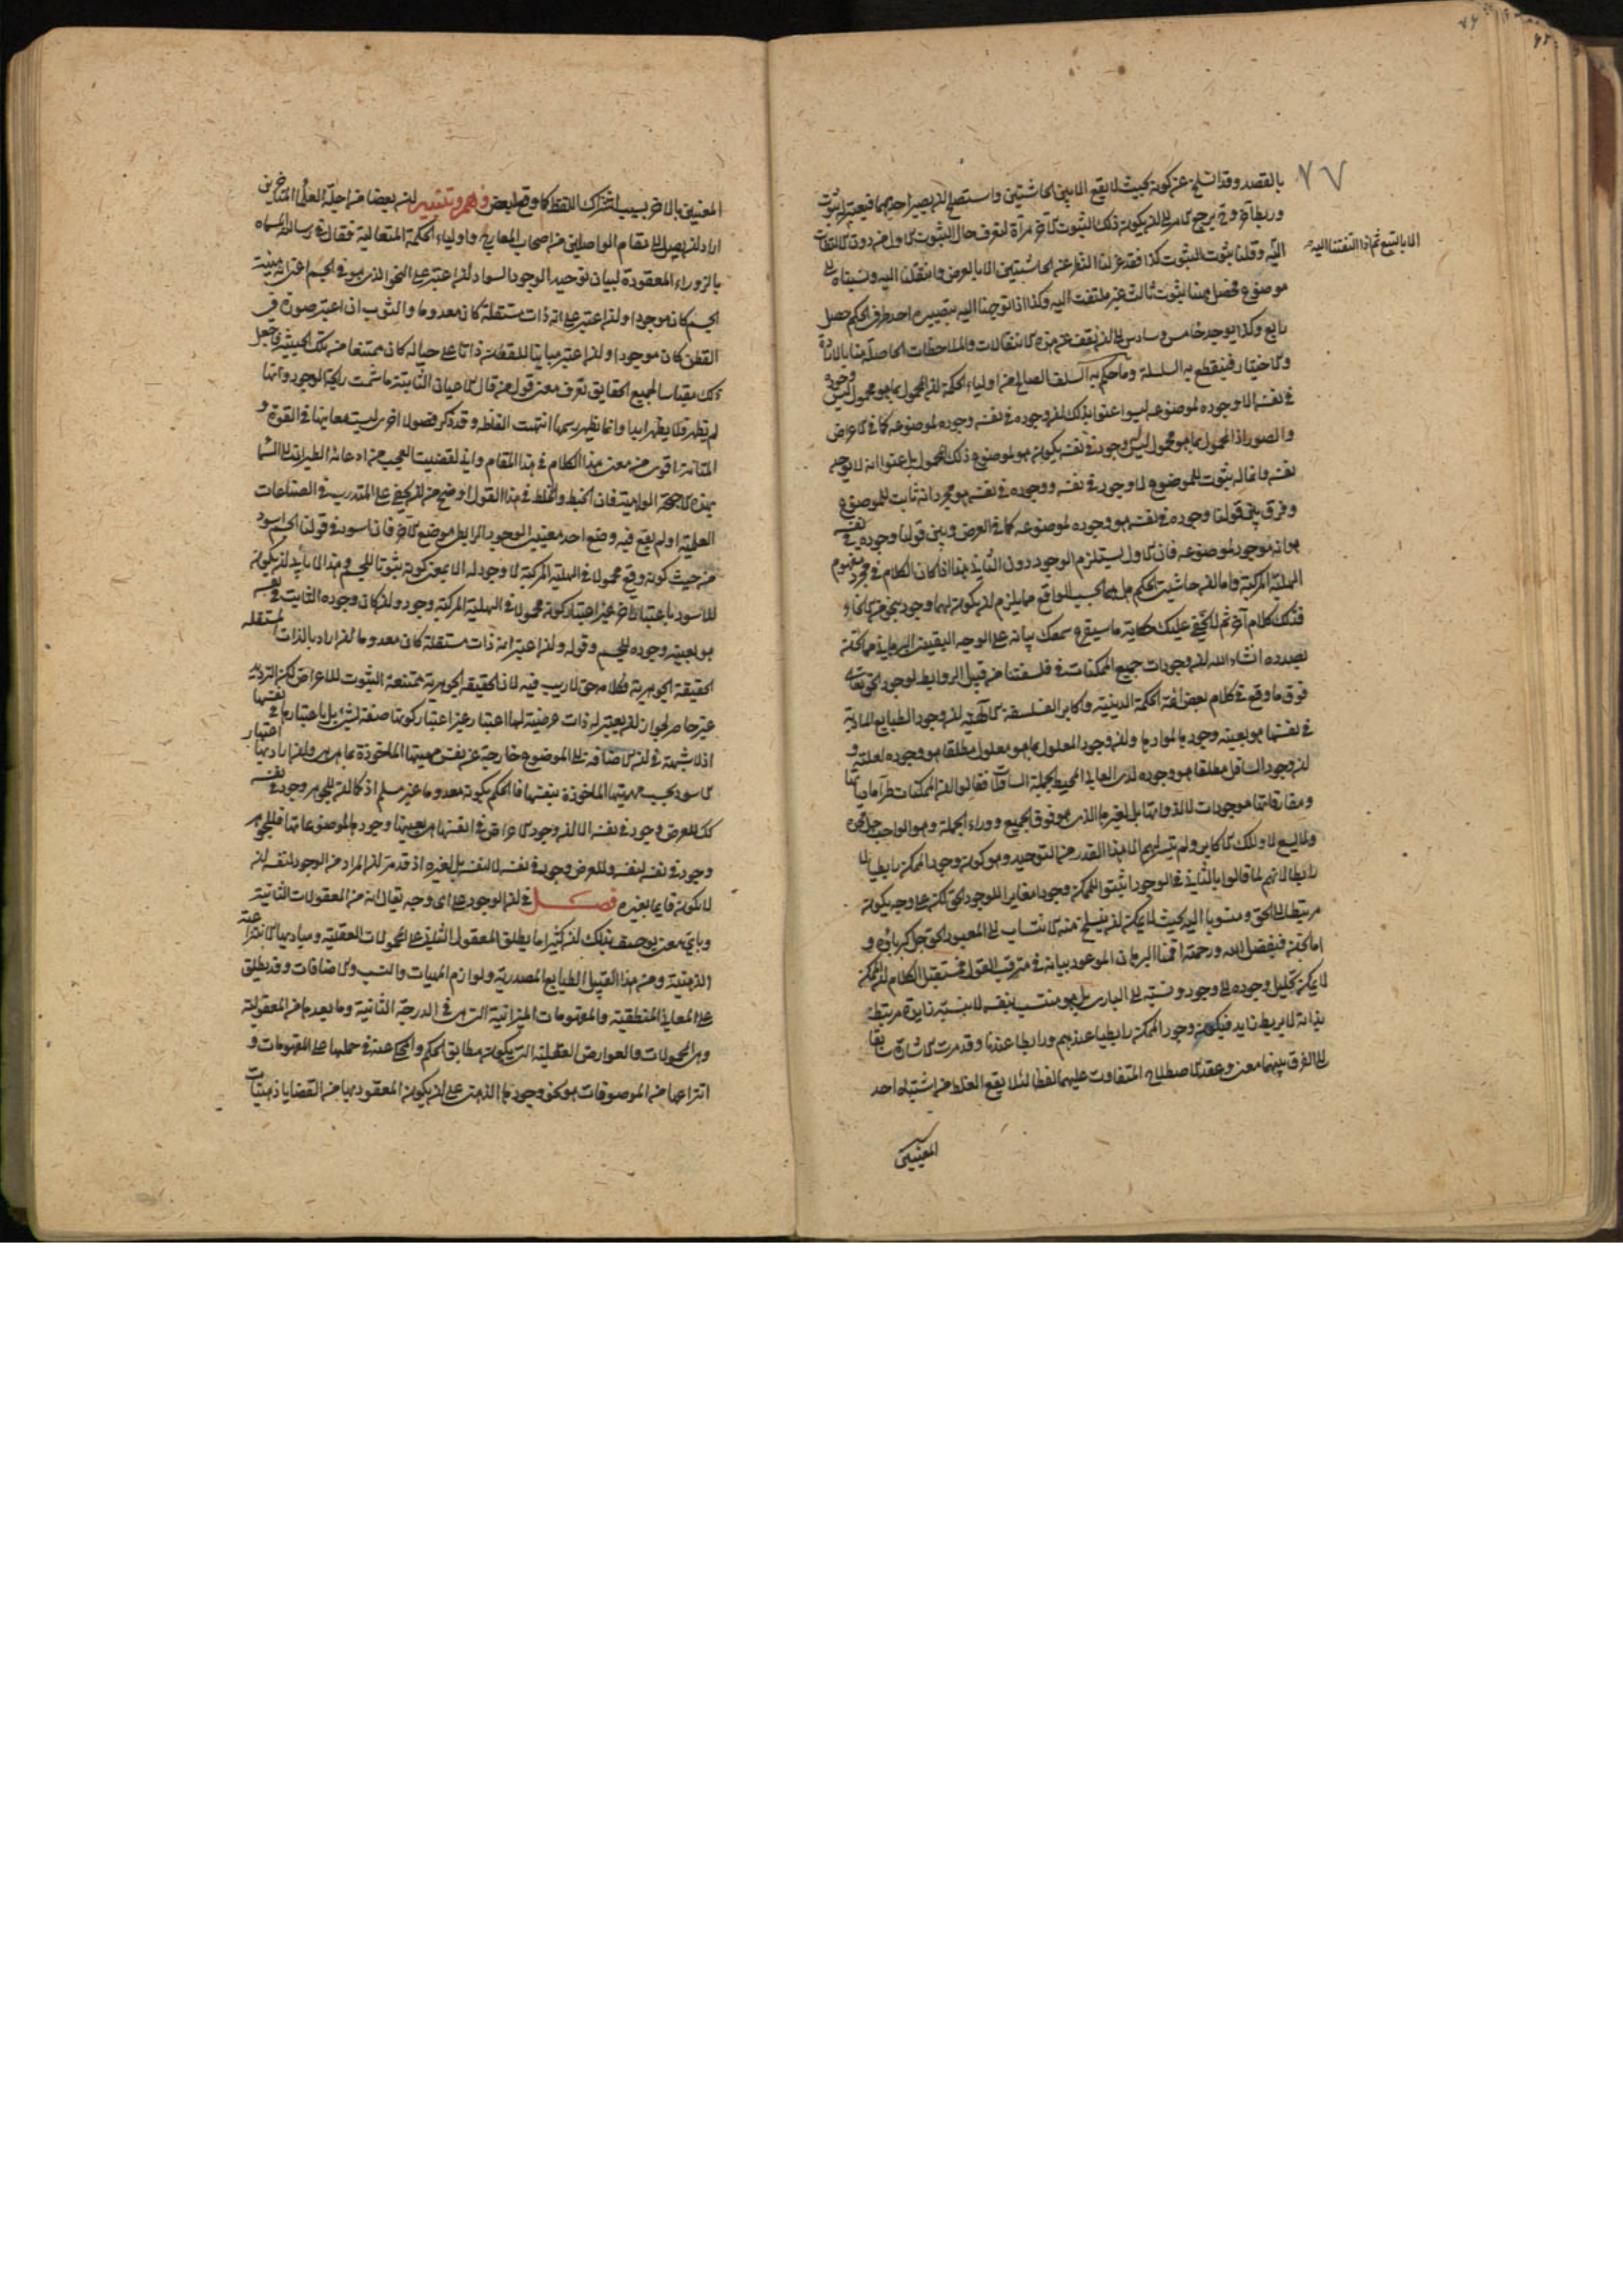 ٧٧
بالقصد وقد انسلخ عن كونه بحيث لا يقع الا بين الحاشيتين واستصلح لان يصير احديهما فيعتبر له ثبوت
وربط آخر وح يرجع الامر الى ان يكون ذلك الثبوت الآخر مرآة لتعرف حال الثبوت الاول من دون الالتفات
الا بالتبع ثم اذا التفتنا اليه
اليه وقلنا ثبوت الثبوت كذا فقد عزلنا النظر عن الحاشيتين الا بالعرض وانتقلنا اليه ونسبناه الى
موضوع فحصل ههنا ثبوت ثالث غير ملتفت اليه وكذا اذا توجهنا اليه بتصييره احد طرفي الحكم حصل
رابع وكذا يوجد خامس وسادس الى ان نقف عن هذه الانتقالات والملاحظات الحاصلة منا بالارادة
والاختيار فينقطع به السلسلة وما حكم به السلف الصالح من اولياء الحكمة ان المحمول بما هو محمول ليس وجوده
في نفسه الا وجوده لموضوعه ليسوا عنوا بذلك ان وجوده في نفسه وجوده لموضوعه كما في الاعراض
والصور اذ المحمول بما هو محمول ليس وجود في نفسه يكون هو لموضوع ذلك المحمول بل عنوا انه لا يوجد
نفسه وانما له ثبوت للموضوع لا وجود في نفسه ووجوده في نفسه هو مجرد انه ثابت للموضوع
وفرق بين قولنا وجوده في نفسه هو وجوده لموضوعه كما في العرض وبين قولنا وجوده في نفسه
هو انه موجود لموضوعه فان الاول يستلزم الوجود دون الثاني هذا اذا كان الكلام في مجرد مفهوم
الهلية المركبة واما ان حاشيتي الحكم هل هما بحسب الواقع مما يلزم ان يكون لهما وجود بنحو من الانحاء
فذلك كلام آخر ثم لا يخفى عليك حكاية ما سيقرع سمعك بيانه على الوجه اليقيني البرهاني مما نحن
بصدده انشاء الله ان وجودات جميع الممكنات في فلسفتنا من قبيل الروابط لوجود الحق تعالى
فوق ما وقع في كلام بعض ائمة الحكمة الدينية واكابر الفلسفة الالهية ان وجود الطبايع المادية
في نفسها هو بعينه وجودها لموادها وان وجود المعلول بما هو معلول مطلقا هو وجوده لعلته و
ان وجود السافل مطلقا هو وجوده لدى العالي المحيط بجملة السافلات فقالوا ان الممكنات طرا مادياتها
ومفارقاتها موجودات لا لذواتها بل لغيرها الذي هو فوق الجميع ووراء الجملة وهو الواجب جل ذكره
ولا يسع لاولئك الاكابر ولم يتيسر لهم الا هذا القدر من التوحيد وهو كون وجود الممكن رابطيا لا
رابطا لانهم لما قالوا بالثاني في الوجود اثبتوا للممكن وجودا مغايرا للوجود الحق لكن على وجه يكون
مرتبطا الى الحق ومنسوبا اليه بحيث لا يمكن ان ينسلخ منه الانتساب الى المعبود الحق جل كبرياؤه و
اما نحن فبفضل الله ورحمته اقمنا البرهان الموعود بيانه في مترقب القول ومستقبل الكلام ان الممكن
لا يمكن تحليل وجوده الى وجود ونسبة الى الباري بل هو منتسب بنفسه لا بنسبة زايدة مرتبط
بذاته لا بربط زايد فيكون وجود الممكن رابطيا عندهم ورابطا عندنا وقد مرت الاشارة سابقا
الى الفرق بينهما معنى وعقد الاصطلاح المتفاوت عليهما لفظا لئلا يقع الغلط من اشتباه احد
المعنيين
المعنيين بالاخر بسبب اشتراك اللفظ كما وقع لبعض وهم وتنبيه ان بعضا من اجلة العلماء المتاخرين
اراد ان يصل الى مقام الواصلين من اصحاب المعارج واولياء الحكمة المتعالية فقال في رسالته المسماة
بالزوراء المعقودة لبيان توحيد الوجود السواد ان اعتبر على النحو الذي هو في الجسم اعني انه هيئة
الجسم كان موجودا وان اعتبر على انه ذات مستقلة كان معدوما والثوب ان اعتبر صورة في
القطن كان موجودا وان اعتبر مباينا للقطن ذاتا على حياله كان ممتنعا من تلك الحيثية فاجعل
ذلك مقياسا لجميع الحقايق تعرف معنى قول من قال الاعيان الثابتة ما شمت رايحة الوجود وانها
لم تظهر ولا يظهر ابدا وانما يظهر رسمها انتهت الفاظه وقد ذكر فصولا اخرى ليست معانيها في القوة و
المتانة اقوى من معنى هذا الكلام في هذا المقام واني لقضيت العجب من ادعائه الطيران الى السماء
بهذه الاجنحة الواهية فان الخبط والخلط في هذا القول اوضح من ان يخفى على المتدرب في الصناعات
العلمية اولم يقع فيه وضع احد معنيي الوجود الرابطي موضع الاخر فان اسود في قولنا الجسم اسود
من حيث كونه وقع محمولا في الهلية المركبة لا وجود له الا بمعنى كونه ثبوتا للجسم وهذا لا يابى ان يكون
للاسود باعتبار آخر غير اعتبار كونه محمولا في الهلية المركبة وجود وان كان وجوده الثابت في نفسه
هو بعينه وجوده للجسم وقوله وان اعتبر انه ذات مستقلة كان معدوما ان اراد بالذات المستقلة
الحقيقة الجوهرية فكلامه حق لا ريب فيه لان الحقيقة الجوهرية ممتنعة الثبوت للاعراض لكن الترديد
غير حاصر لجواز ان يعتبر له ذات عرضية لها اعتبار غير اعتبار كونها صفة لشيء بل باعتبارها في نفسها
اذ لا شبهة في ان الاضافة الى الموضوع خارجة عن نفس مهيتها الماخوذة بما هي هي وان
الاسود بحسب مهيتها الماخوذة بنفسها فالحكم بكونه معدوما غير مسلم اذ كما ان للجوهر وجودا في نفسه
كك للعرض وجود في نفسه الا ان وجود الاعراض في انفسها هي بعينها وجودها لموضوعاتها فللجوهر
وجود في نفسه لنفسه وللعرض وجود في نفسه لا لنفسه بل لغيره اذ قد مر ان المراد من الوجود لنفسه ان
لا يكون قايما بغيره فصل في ان الوجود على اي وجه يقال انه من المعقولات الثانية
وباي معنى يوصف بذلك ان كثيرا ما يطلق المعقول الثاني على المحمولات العقلية ومباديها الانتزاعية
الذهنية ومن هذا القبيل الطبايع المصدرية ولوازم المهيات والنسب والاضافات وقد يطلق
على المعاني المنطقية والمفهومات الميزانية التي هي في الدرجة الثانية وما بعدها من المعقولية
وهي المحمولات والعوارض العقلية التي يكون مطابق الحكم والمحكي عنه في حملها على المفهومات و
انتزاعها من الموصوفات هو نحو وجودها الذهني على ان يكون المعقود بها من القضايا ذهنيات